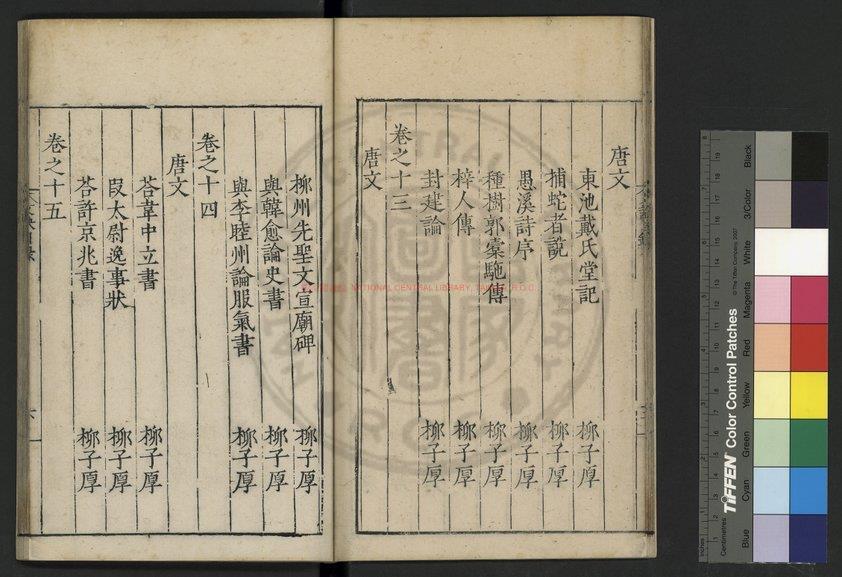 唐文
東池戴氏堂記 柳子厚
捕蛇者說 柳子厚
愚溪詩序 柳子厚
種樹郭橐駞傳 柳子厚
梓人傳 柳子厚
封建論 柳子厚
卷之十三
唐文
柳州先聖文宣廟碑 柳子厚
與韓愈論史書 柳子厚
與李睦州論服氣書 柳子厚
卷之十四
唐文
荅韋中立書 柳子厚
段太尉逸事狀 柳子厚
荅許京兆書 柳子厚
卷之十五
NATIONAL CENTRAL LIBRARY,
TIFFEN Color Control Patches
© The Tiffen Company, 2007
Centimetres
Inches
Blue
Cyan
Green
Yellow
Red
Magenta
White
3/Color
Black